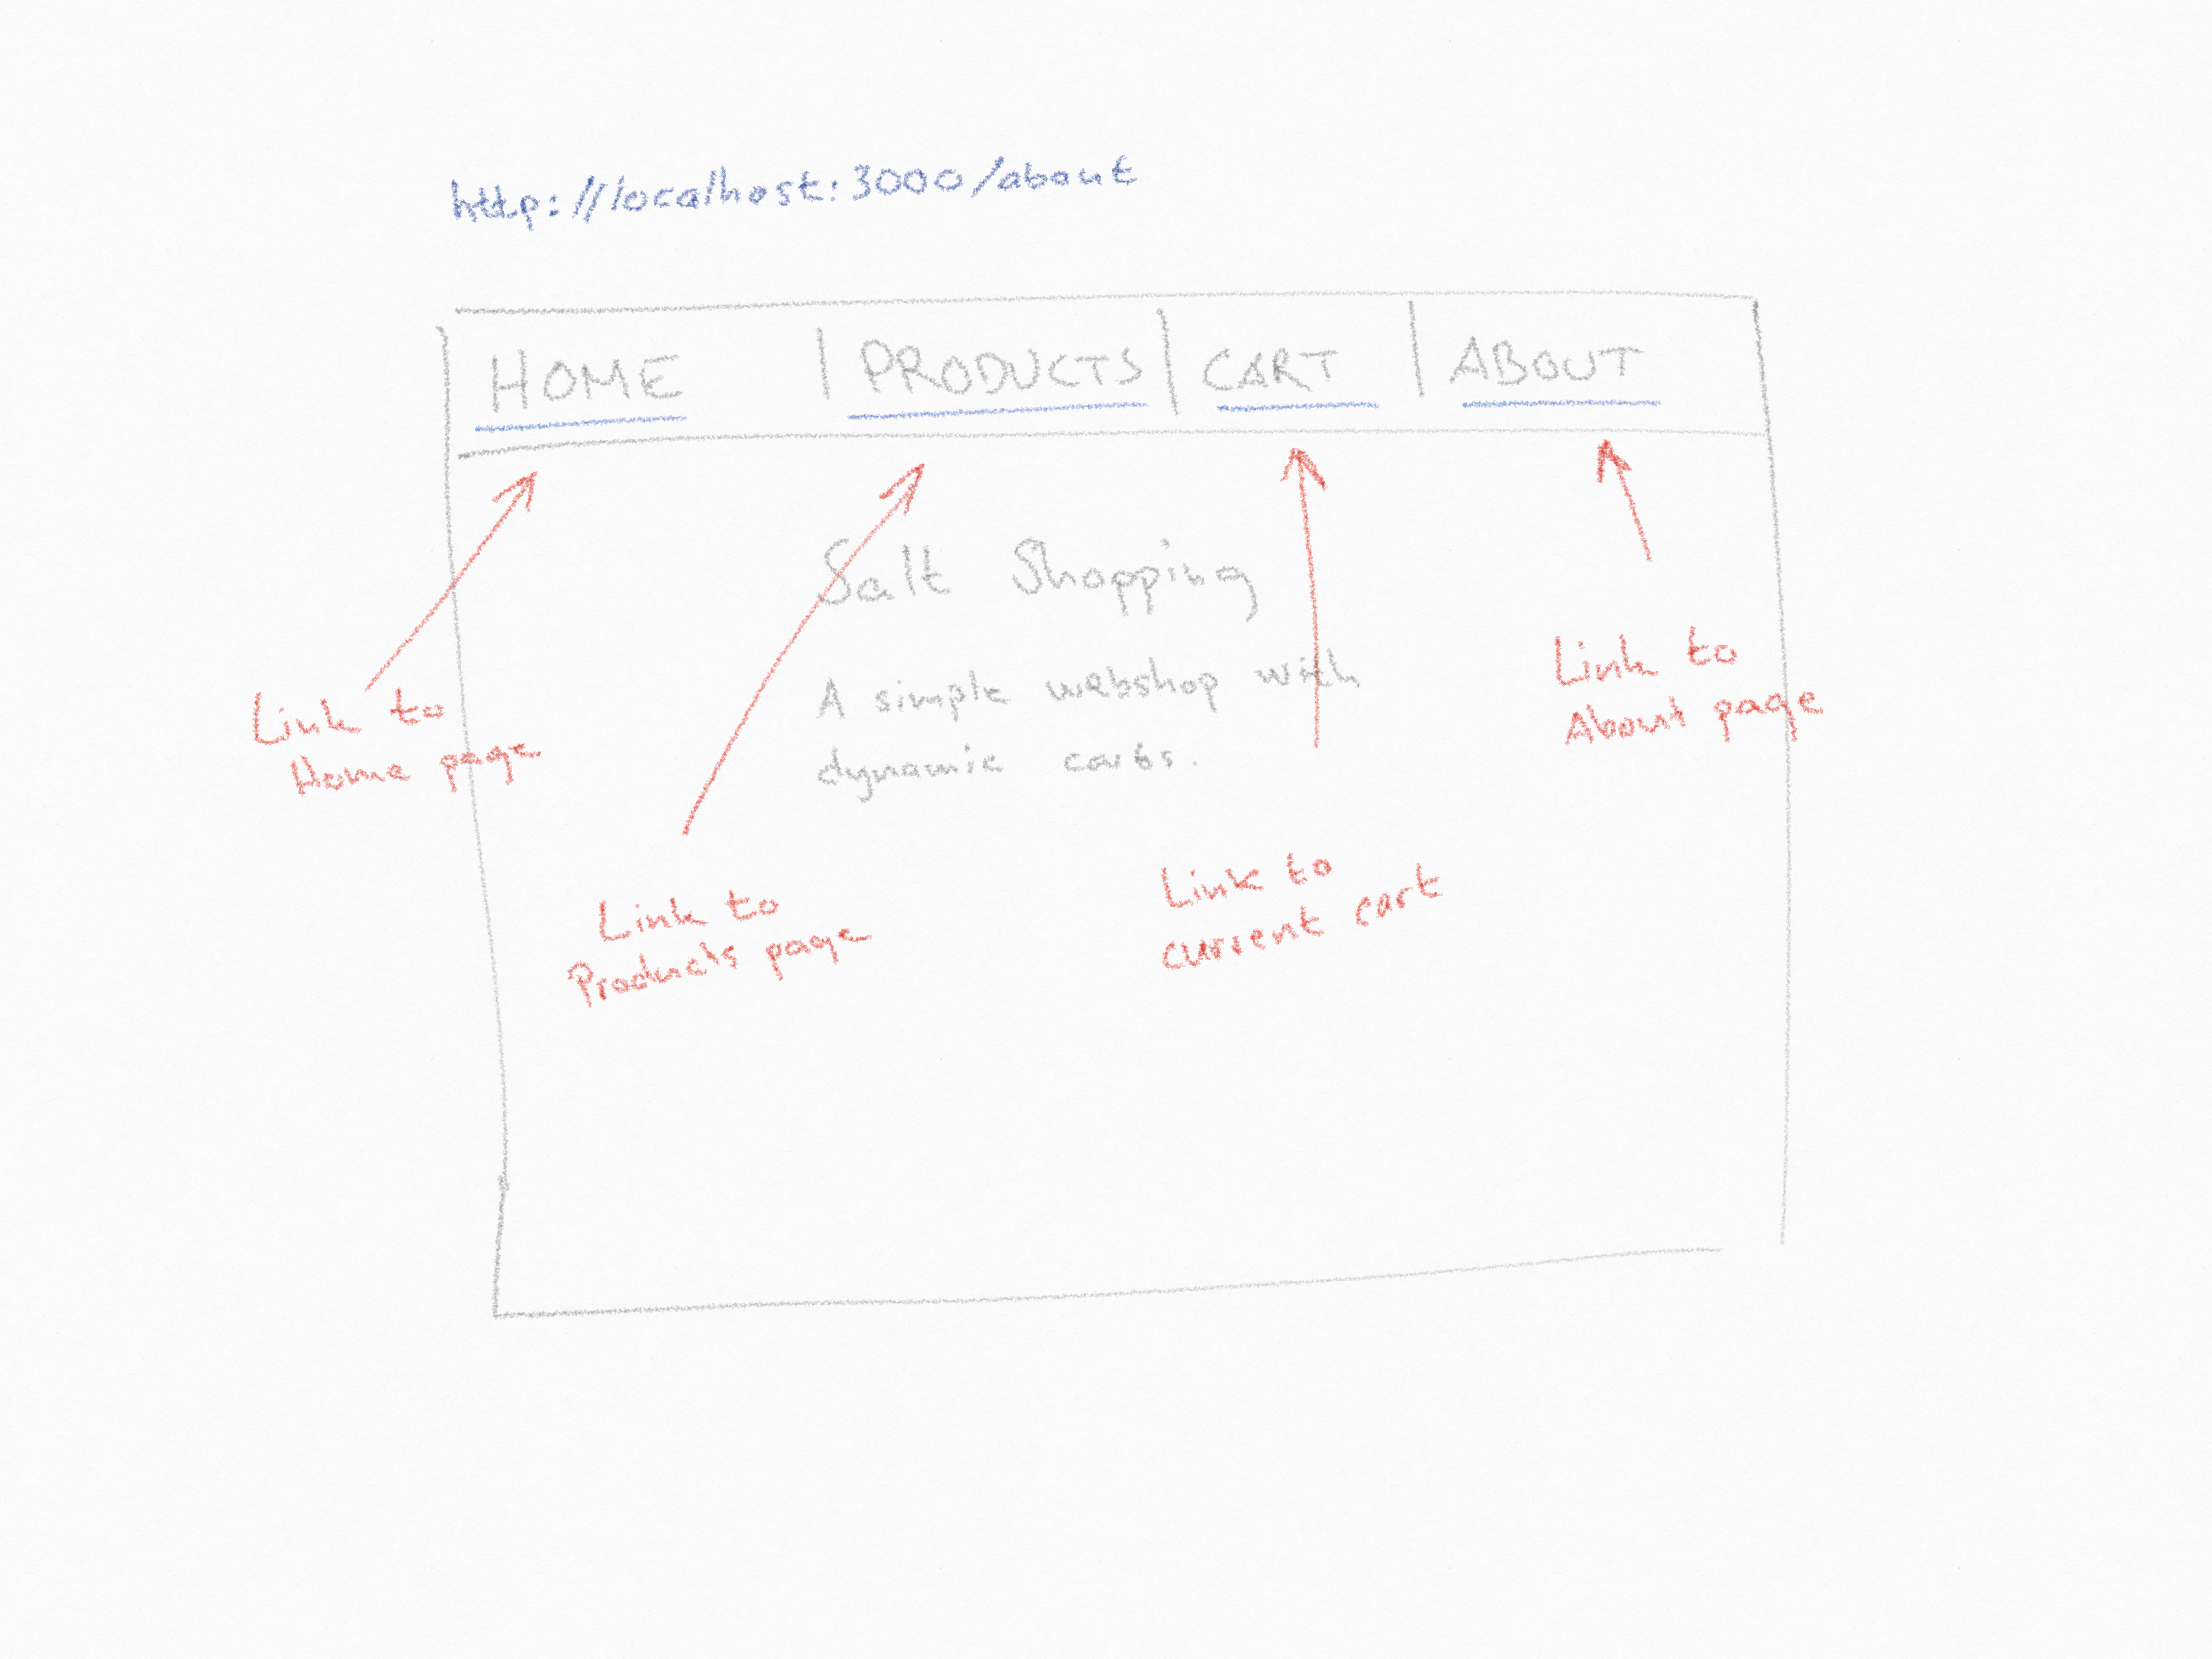 http://localhost:3000/about
HOME | PRODUCTS | CART | ABOUT
Salt Shopping
A simple webshop with
dynamic carts.
Link to
Home page
Link to
Products page
Link to
current cart
Link to
About page